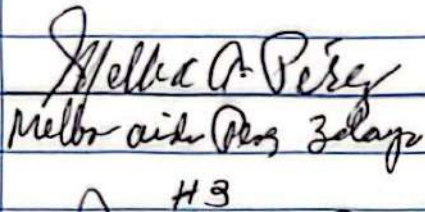 Melba A. Pérez
Melba aida Perez Zelaya
#3